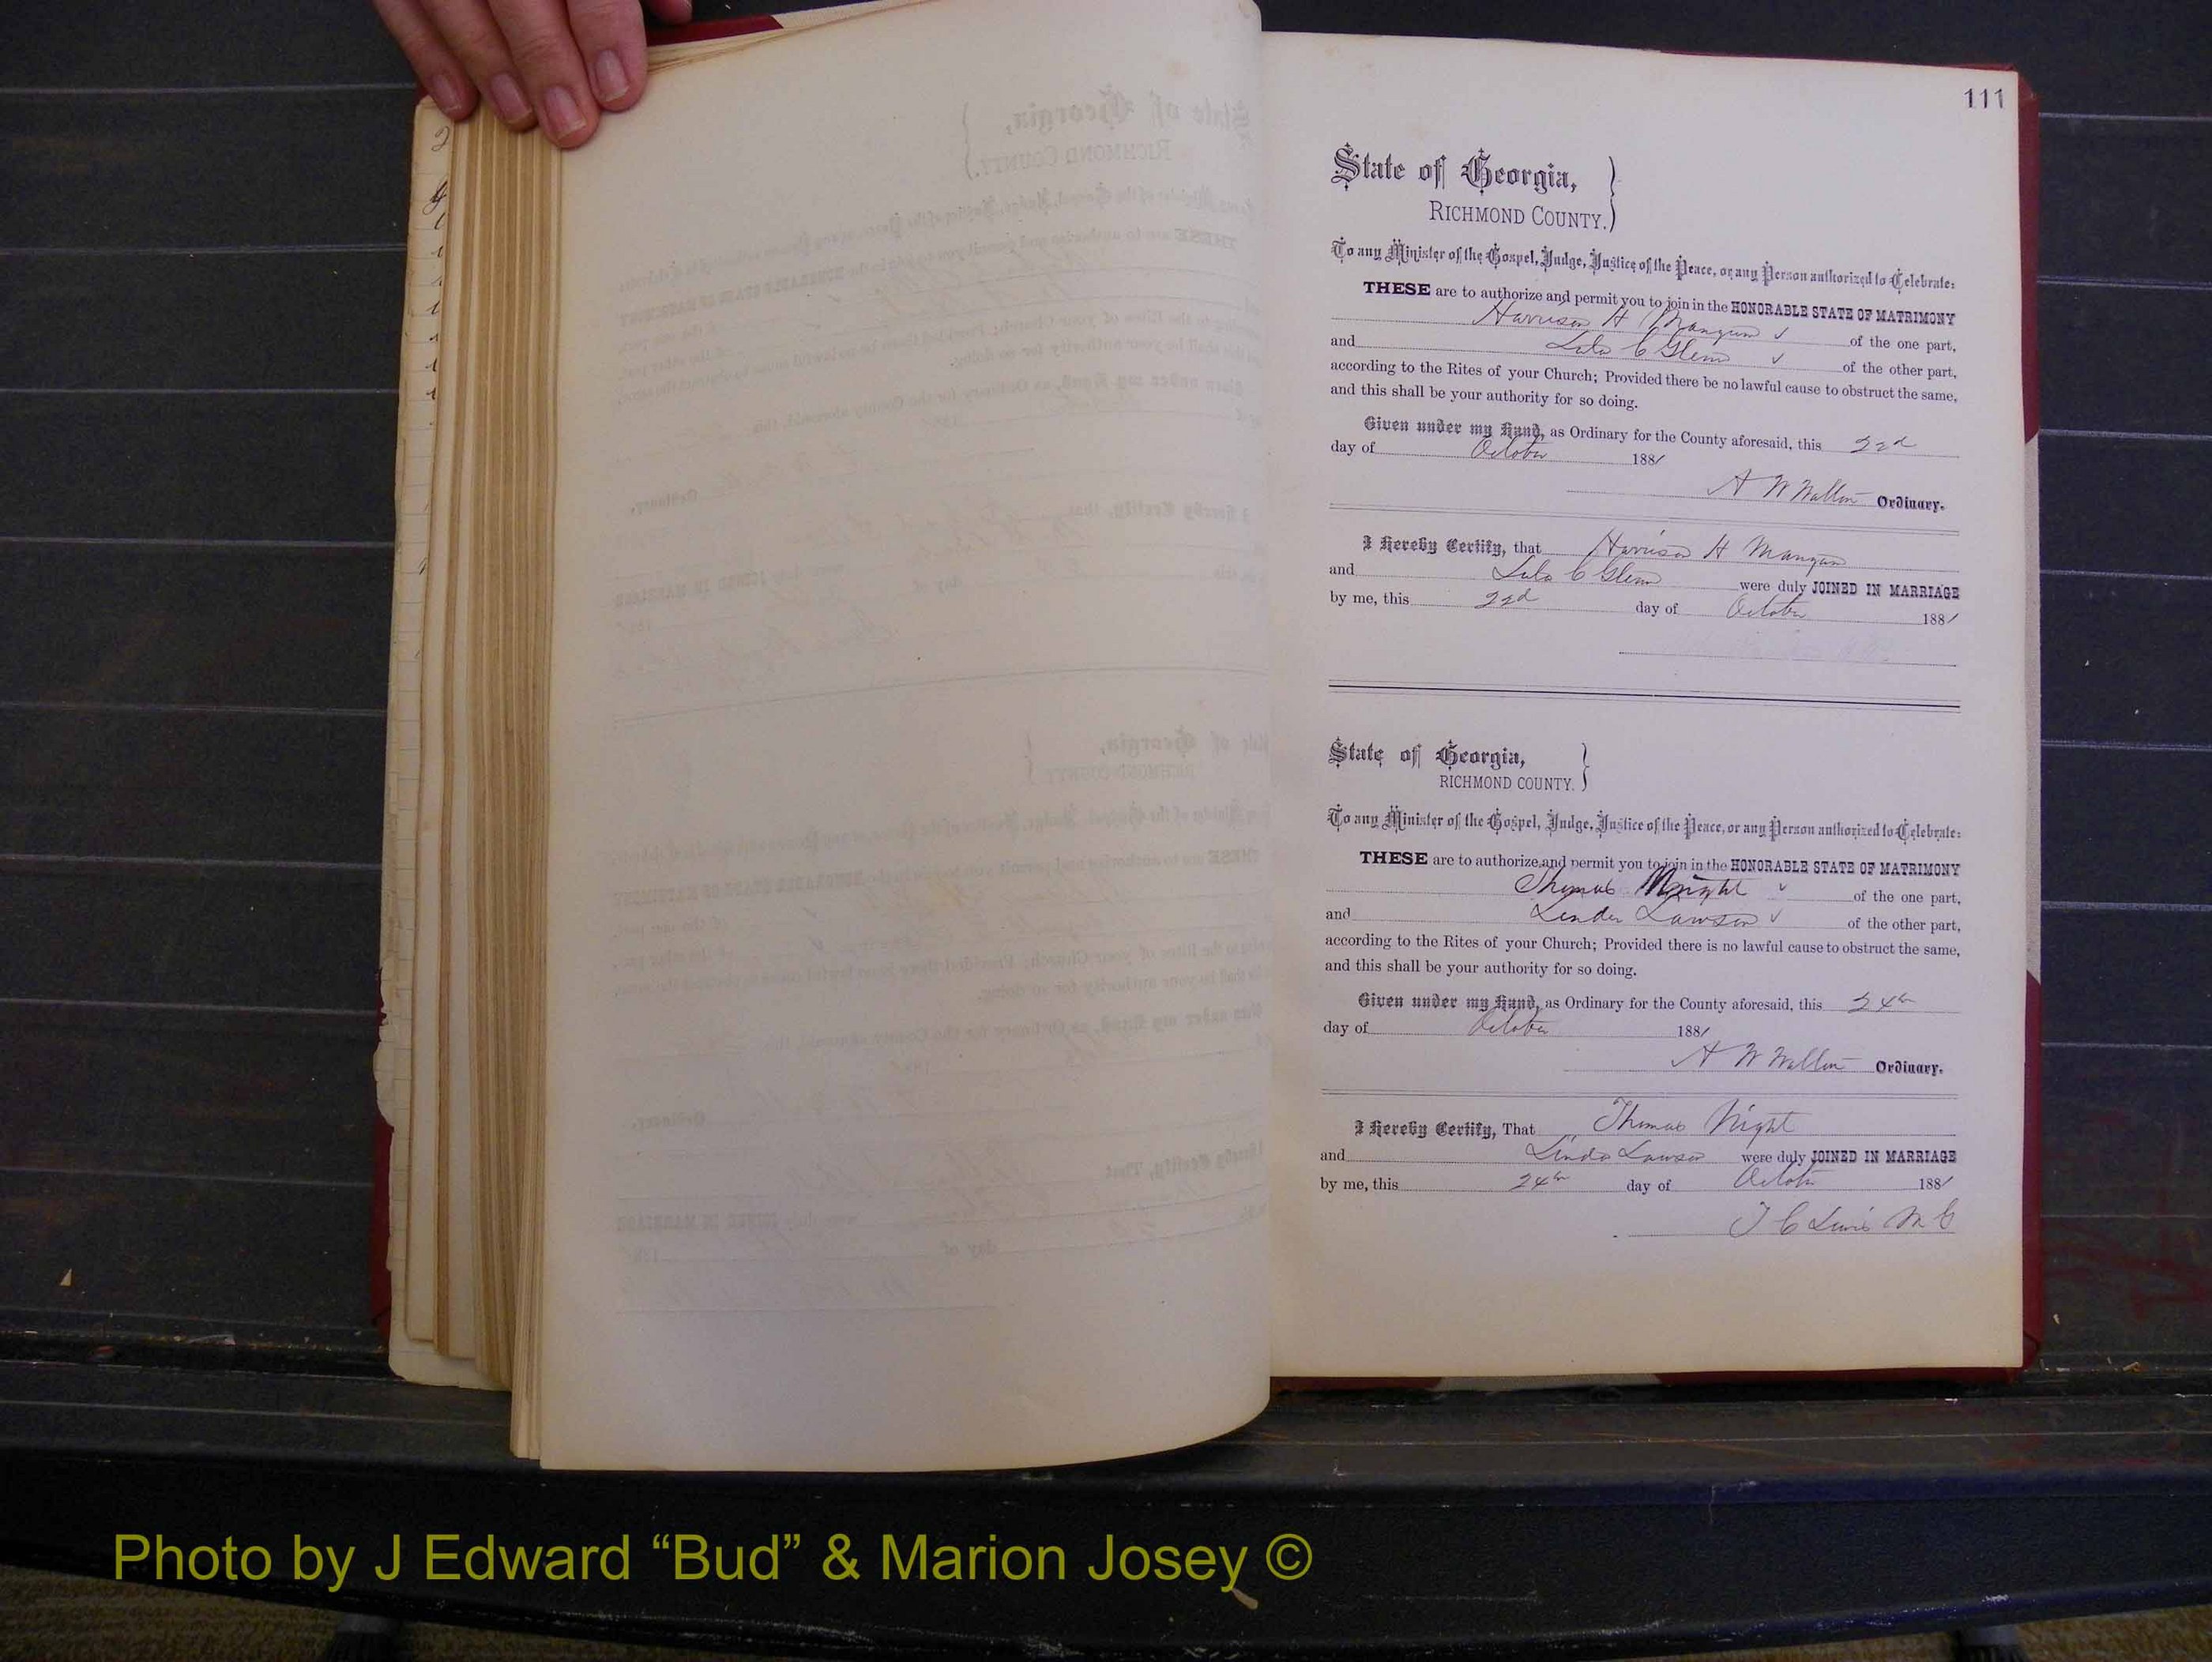 111
State of Georgia,
RICHMOND COUNTY.
To any Minister of the Gospel, Judge, Justice of the Peace, or any Person authorized to Celebrate:
THESE are to authorize and permit you to join in the HONORABLE STATE OF MATRIMONY
Harrison H Mangum of the one part,
and Lula C Glenn of the other part,
according to the Rites of your Church; Provided there be no lawful cause to obstruct the same,
and this shall be your authority for so doing.
Given under my Hand, as Ordinary for the County aforesaid, this 22d
day of October 1881
A W Walton Ordinary.
I Hereby Certify, that Harrison H Mangum
and Lula C Glenn were duly JOINED IN MARRIAGE
by me, this 22d day of October 1881
State of Georgia,
RICHMOND COUNTY.
To any Minister of the Gospel, Judge, Justice of the Peace, or any Person authorized to Celebrate:
THESE are to authorize and permit you to join in the HONORABLE STATE OF MATRIMONY
Thomas Night of the one part,
and Linder Lawson of the other part,
according to the Rites of your Church; Provided there is no lawful cause to obstruct the same,
and this shall be your authority for so doing.
Given under my Hand, as Ordinary for the County aforesaid, this 24th
day of October 1881
A W Walton Ordinary.
I Hereby Certify, That Thomas Night
and Linda Lawson were duly JOINED IN MARRIAGE
by me, this 24th day of October 1881
T C Lewis M G
Photo by J Edward “Bud” & Marion Josey ©